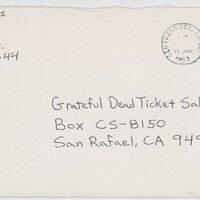 s
644
25 JAN
1983
Grateful Dead Ticket Sal
Box CS-8150
San Rafael, CA 949